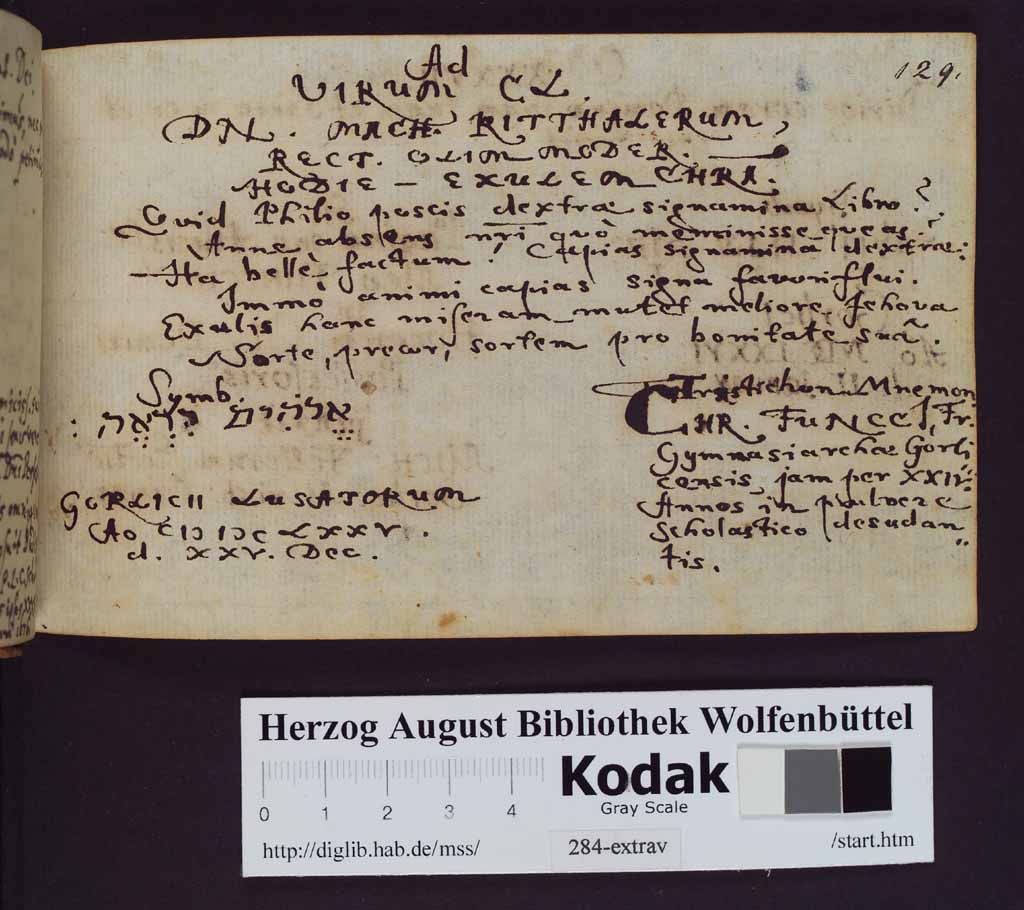 129.
Ad
VIRUM CL.
DN. MACH. RITTHALERUM,
RECT. OLIM MODER.
HODIE – EXULEM CHRI.
Quid Philio poscis dextræ signamina Libro?
Anne absens nr̃i quò meminisse queas?
Ita bellè factum! Capias signamina dextræ:
Immò animi capias signa favoriflui.
Exulis hanc miseram mutet meliore Jehova
Sorte, precor, sortem pro bonitate suâ.
Symb.
אלהים יראה:
GORLICII LUSATORUM
Ao CIↃ IↃC LXXV.
d. XXV. Dec.
Tristichon Mnemon
CHR. FUNCCI, Fr.
Gymnasiarchæ Gorli
censis, jam per XXIV
Annos in pulvere
Scholastico desudan
tis.
Herzog August Bibliothek Wolfenbüttel
Kodak
Gray Scale
0 1 2 3 4
http://diglib.hab.de/mss/
284-extrav
/start.htm